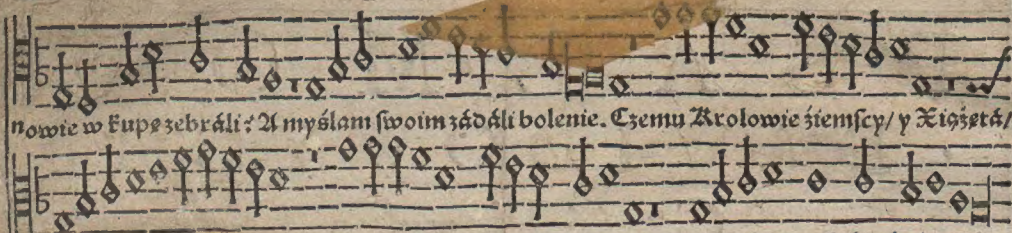 nowie w kupę zebráli? A myślam swoim zádáli bolenie. Czemu Krolowie źiemscy/ y Xiążętá/